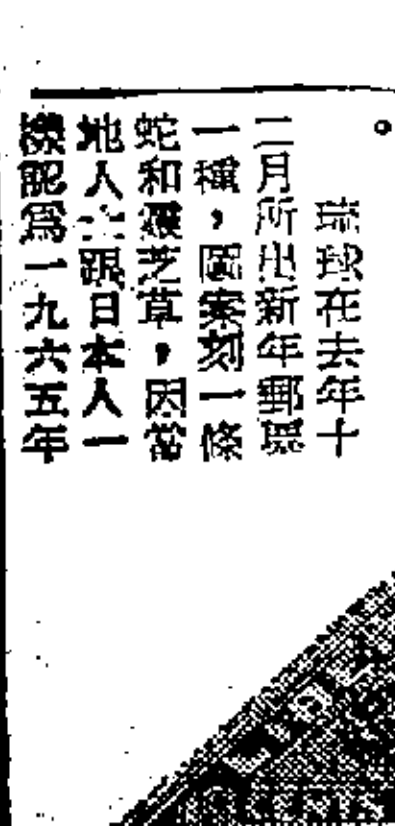 。
琉球在去年十
二月所出新年郵票
一種，圖案刻一條
蛇和靈芝草，因當
地人士跟日本人一
樣認爲一九六五年
CENTS